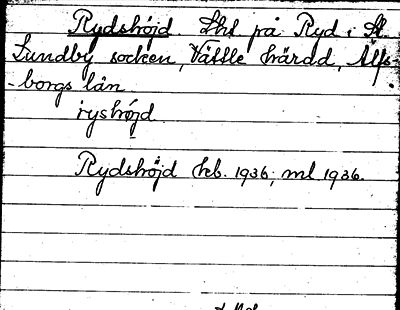 Rydshöjd Lht på Ryd i St.
Lundby socken, Vättle härad, Älfs-
-borgs län
ryshöjd
Rydshöjd hcb. 1936, ml 1936.